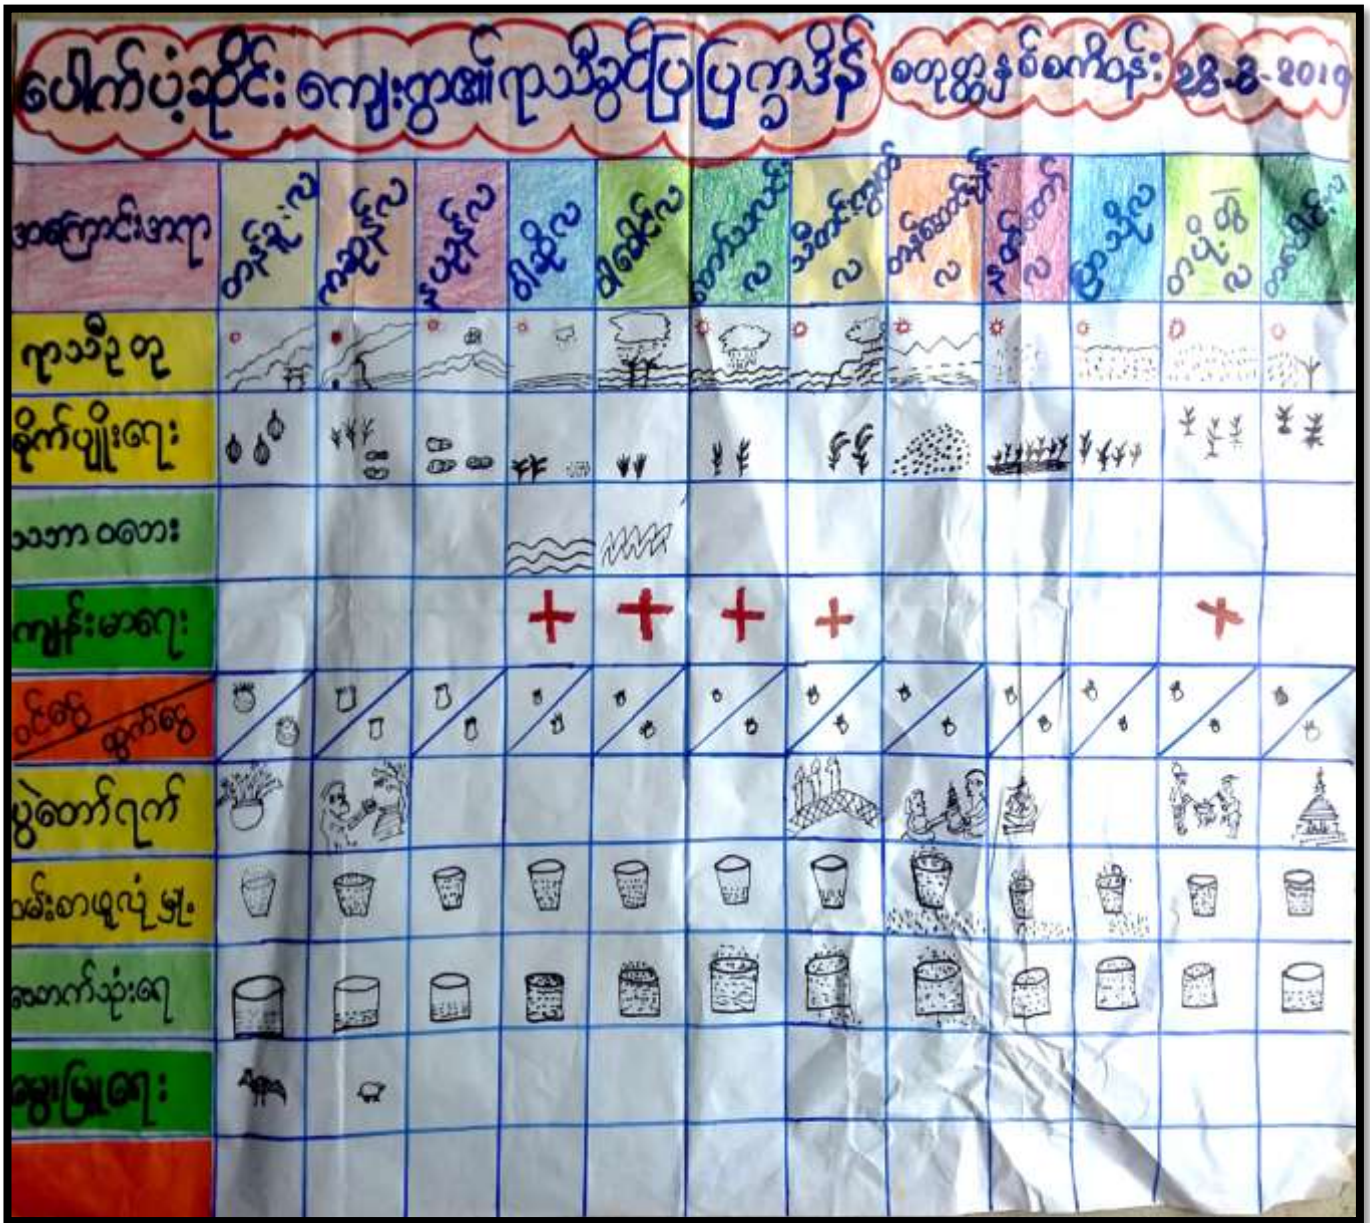 ပေါက်ပံ့ဆိုင်း ကျေးရွာ၏ ရာသီခွင်ပြ ပြက္ခဒိန်
စတုတ္ထနှစ်စကီဝန်း
28-8-2019
အကြောင်းအရာ တန်ခူးလ ကဆုန်လ နယုန်လ ဝါဆိုလ ဝါခေါင်လ တော်သလင်းလ သီတင်းကျွတ်လ တန်ဆောင်မုန်းလ နတ်တော်လ ပြာသိုလ တပို့တွဲလ တပေါင်းလ
ရာသီဥတု
စိုက်ပျိုးရေး
သဘာဝဘေး
ကျန်းမာရေး
ဝင်ငွေ ထွက်ငွေ
ပွဲတော်ရက်
ဝမ်းစာဖူလုံမှု
သောက်သုံးရေ
မွေးမြူရေး